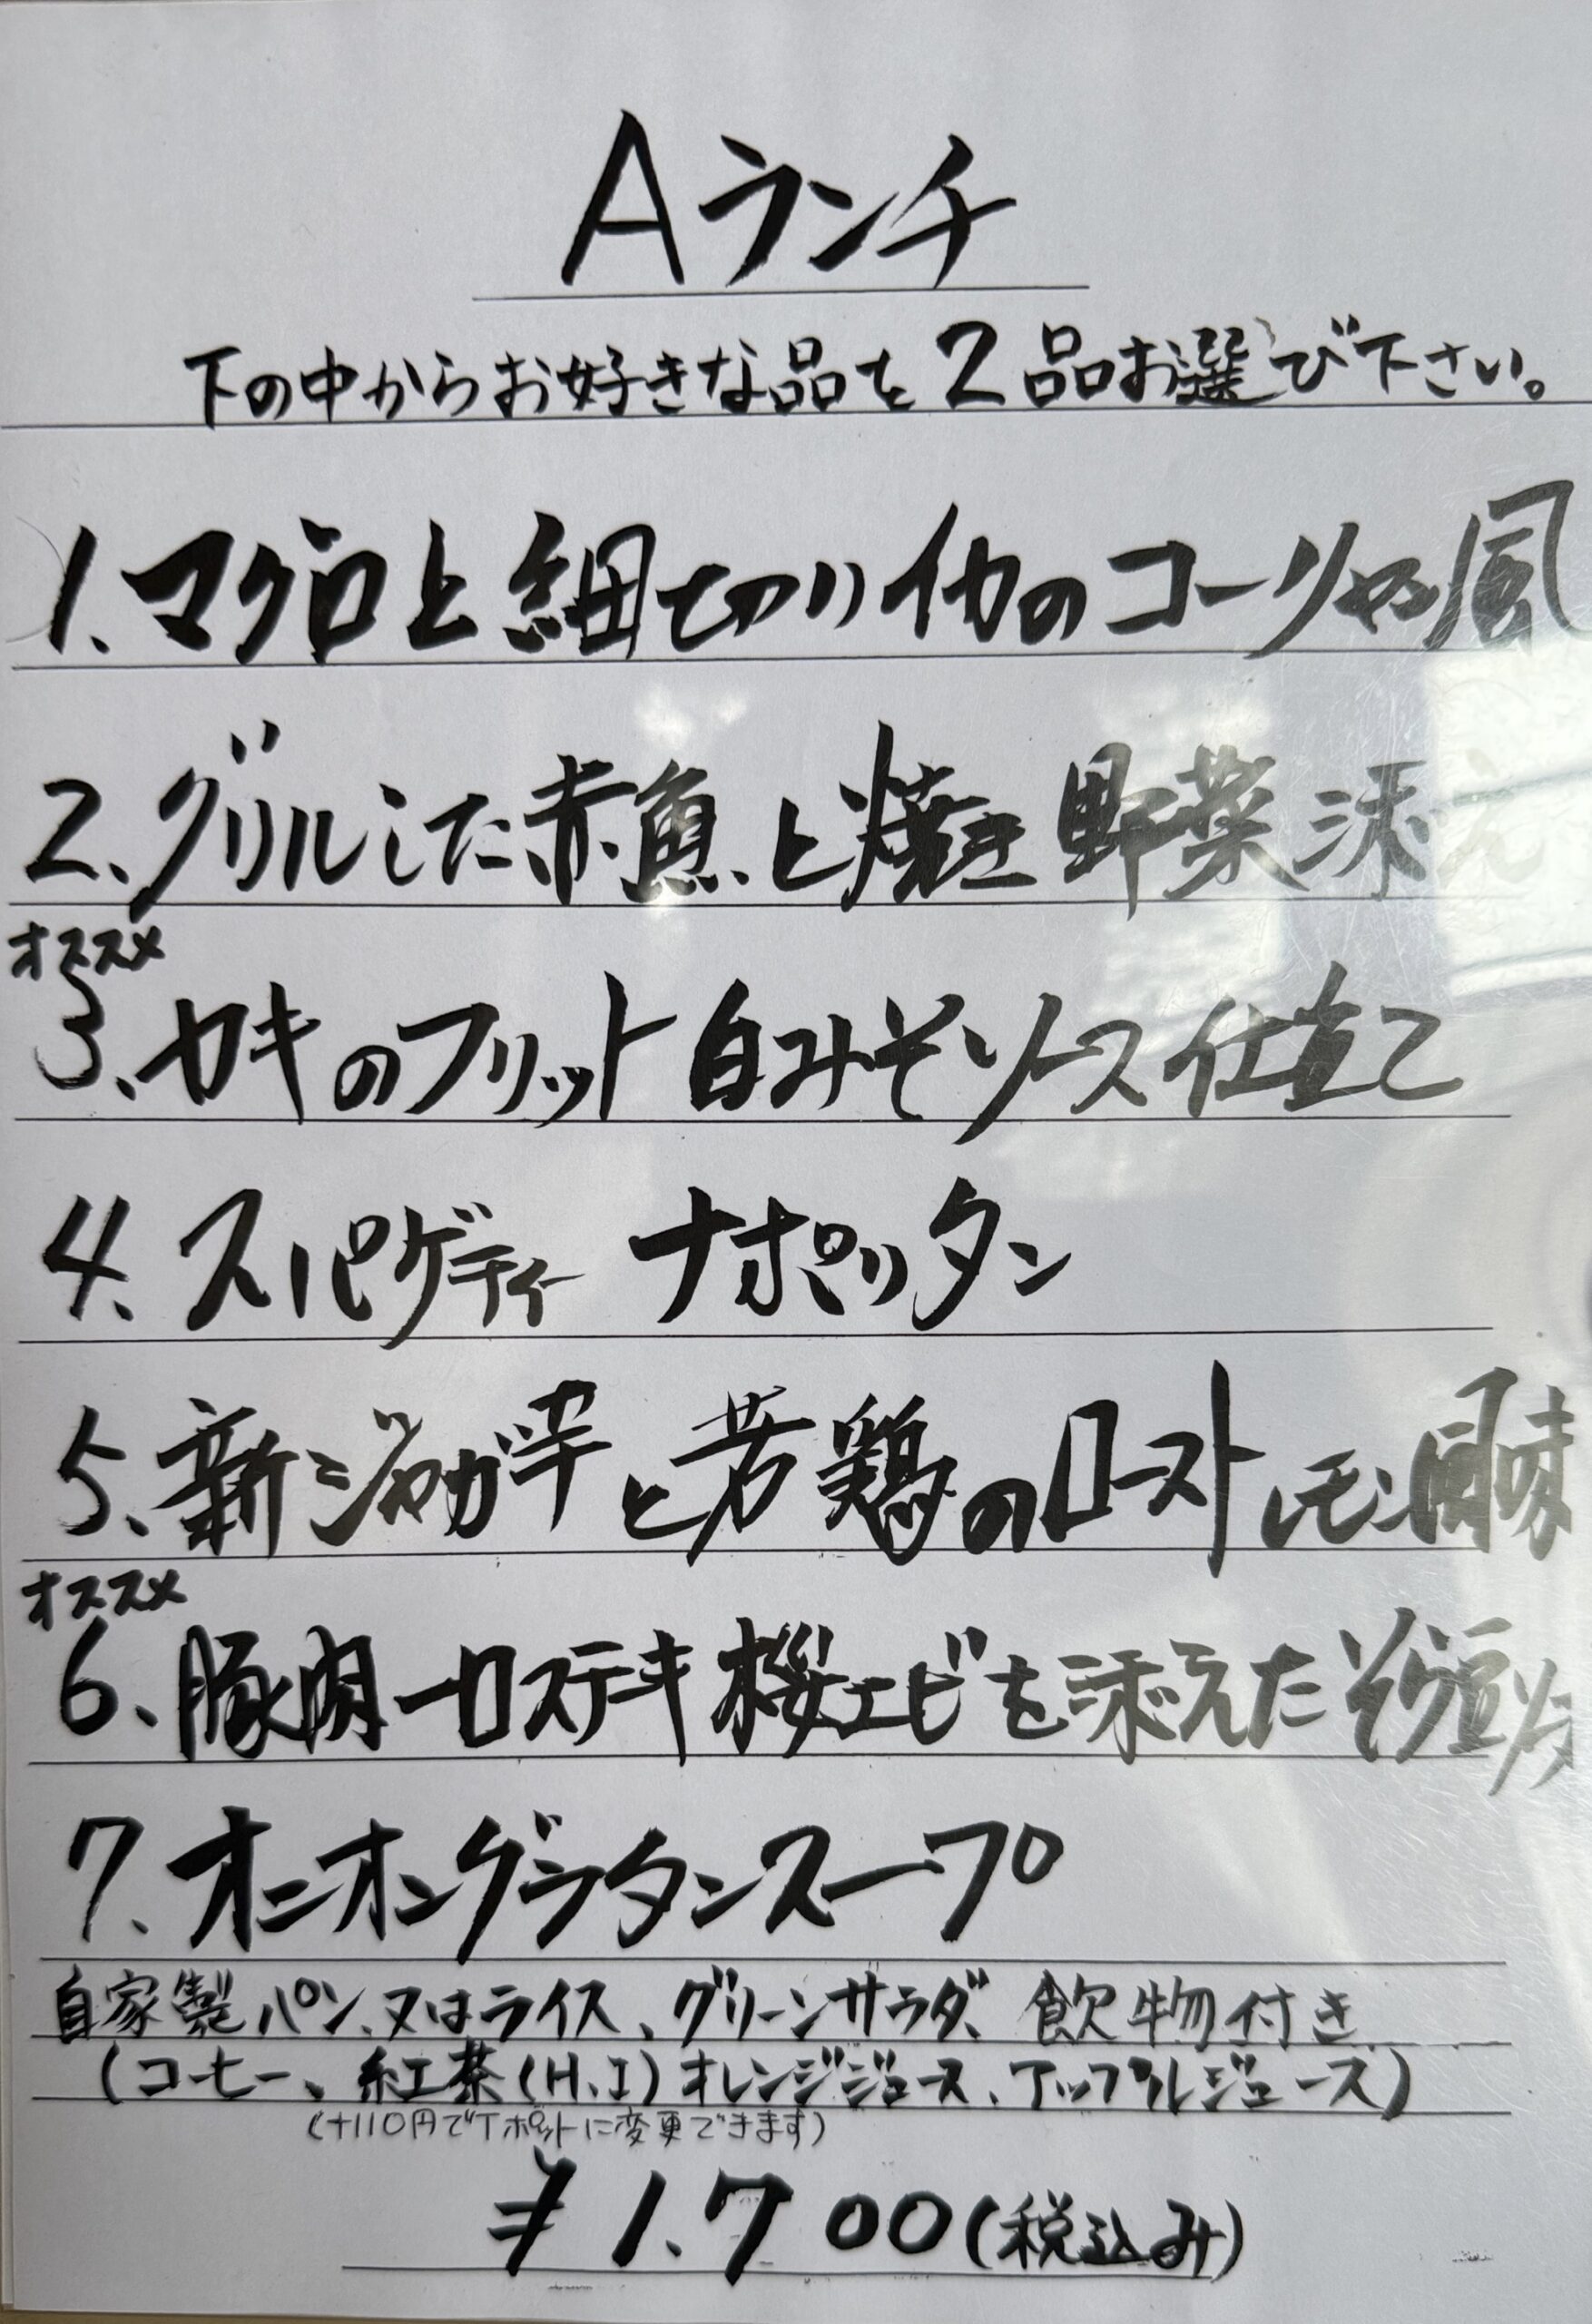 Aランチ
下の中からお好きな品を2品お選び下さい。
1.マグロと細切りイカのコールヤ風
2.グリルした赤魚と焼き野菜添え
オススメ
3.カキのフリット白みそソース仕立て
4.スパゲティー ナポリタン
5.新ジャガ芋と若鶏のロースト レモン風味
オススメ
6.豚肉一口ステーキ桜エビを添えたそら豆ソース
7.オニオングラタンスープ
自家製パン、又はライス、グリーンサラダ、飲物付き
(コーヒー、紅茶(H.I)オレンジジュース、アップルジュース)
(+110円でTポットに変更できます)
¥1.700(税込み)